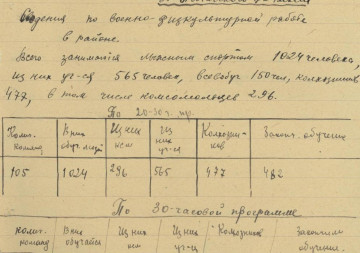 Сведения по военно-физкультурной работе
в районе.
Всего занимается лыжным спортом 1024 человека,
из них уч-ся 565 человек, всевобуч 150 чел, колхозников
477, в том числе комсомольцев 296.
По 20-30 г. пр.
Колич. команд | В них обуч. людей | Из них вс | Из них уч-ся | Колхозни-ков | Законч. обучение
105 | 1024 | 296 | 565 | 477 | 482
По 30-часовой программе
Колич. команд | В них обучается | Из них вс | Из них уч-ся | Колхозников | Закончили обучение